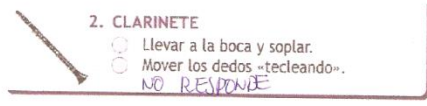 2. CLARINETE
Llevar a la boca y soplar.
Mover los dedos «tecleando».
NO RESPONDE